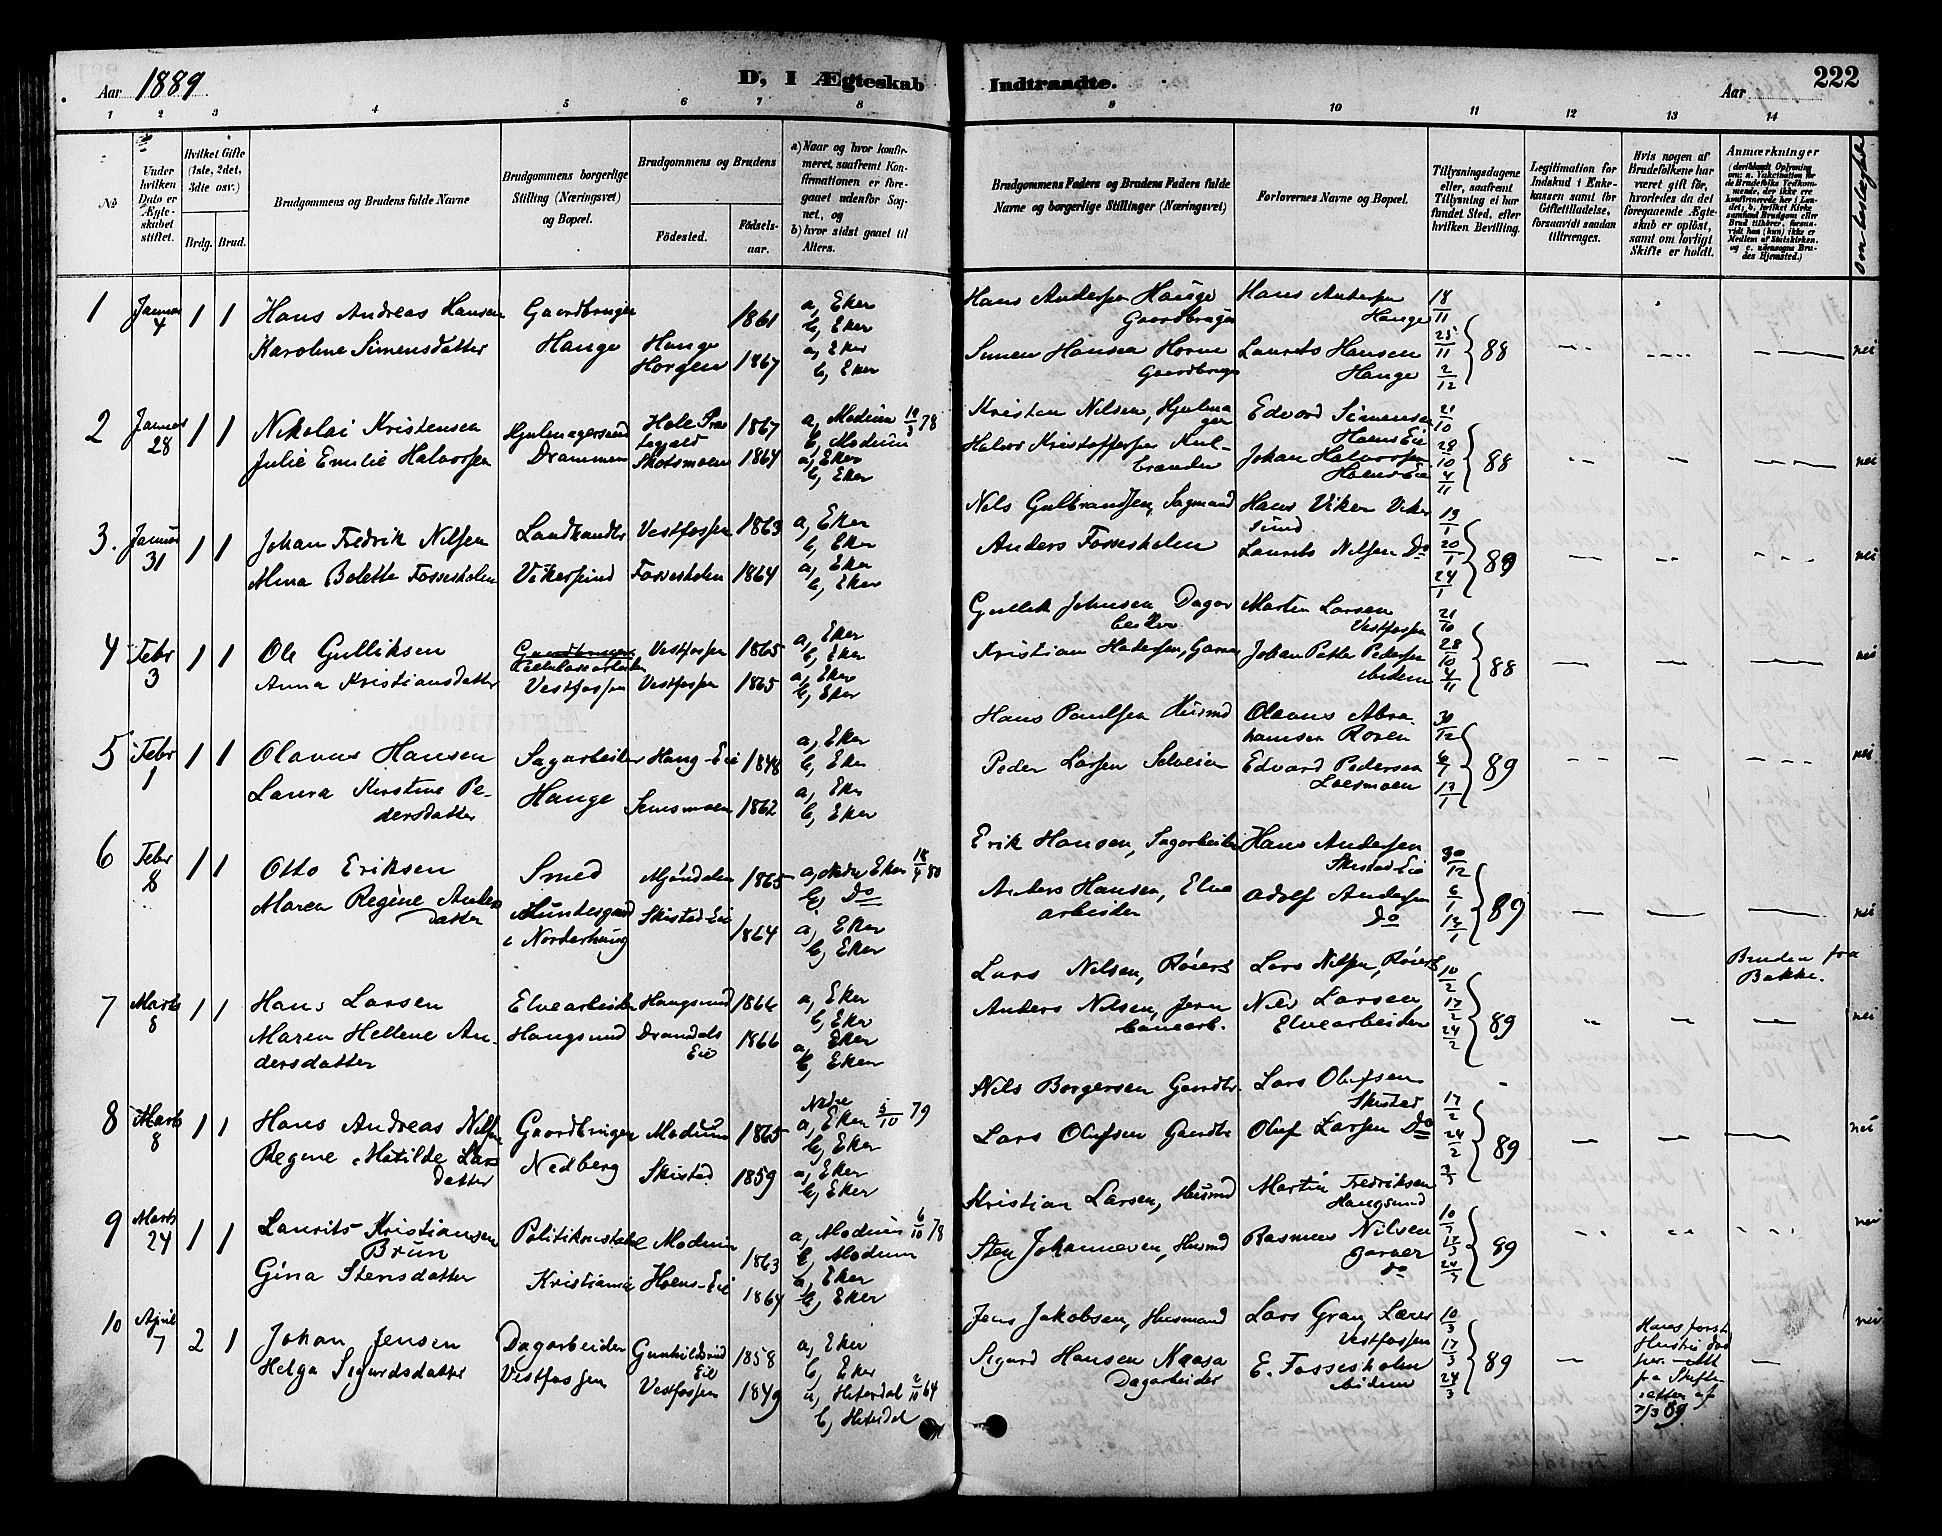 Aar 1889
D, I Ægteskab Indtraadte.
Aar
222
1 2 3 4 5 6 7 8 9 10 11 12 13 14
No
Under hvilken Dato er Ægteskabet stiftet.
Hvilket Gifte (1ste, 2det, 3die osv.)
Brdg. Brud.
Brudgommens og Brudens fulde Navne
Brudgommens borgerlige Stilling (Næringsvei) og Bopæl.
Brudgommens og Brudens
Fødested. Fødselsaar.
a) Naar og hvor konfirmeret, saafremt Konfirmationen er foregaaet udenfor Sognet, og
b) hvor sidst gaaet til Alters.
Brudgommens Faders og Brudens Faders fulde Navne og borgerlige Stillinger (Næringsvei)
Forlovernes Navne og Bopæl.
Tillysningsdagene eller, saafremt Tillysning ei har fundet Sted, efter hvilken Bevilling.
Legitimation for Indskud i Enkekassen samt for Giftetilladelse, forsaavidt saadan tiltrænges.
Hvis nogen af Brudefolkene har været gift før, hvorledes da det foregaaende Ægteskab er opløst, samt om lovligt Skifte er holdt.
Anmærkninger
1 Januar 4 1 1 Hans Andreas Hansen Gaardbruger 1861 a, Eker
Hauge b, Eker
Karoline Simensdatter Hauge Horgen 1867 a, Eker
b, Eker
Hans Andersen Hauge Hans Andersen 18/11
Gaardbruger Hauge 25/11 88
Simen Hansen Horne Laurits Hansen
Gaardbruger Hauge 2/12 nei
2 Januar 28 1 1 Nikolai Kristensen Hjulmagersvend Hole Præstegjeld 1867 a, Modum 78
b, Modum
Julie Emilie Halvorsen Drammen Skotsmoen 1864 a, Eker
b, Eker
Kristen Nilsen, Hjulmager Edvard Simensen 21/10
Hoens Eie 28/10 88
Halvor Kristoffersen Johan Halvorsen
Hoens Eie 4/11 nei
3. Januar 31 1 1 Johan Fredrik Nilsen Landhandler Vestfossen 1863 a, Eker
b, Eker
Alma Bolette Fossesholm Vikersund Fossesholm 1864 a, Eker
b, Eker
Nils Gulbrandsen, Sagmand Hans Viker Vikersund 13/1
Anders Fossesholm Laurits Nilsen Do 20/1 89
24/1 nei
4 Febr 3 1 1 Ole Gulliksen Vestfossen 1865 a, Eker
b, Eker
Anna Kristiansdatter Vestfossen Vestfossen 1865 a, Eker
b, Eker
Gullik Johnsen Dagarbeider Martin Larsen Vestfossen 21/10
Kristian Johan Petter Pedersen 28/10 88
ibidem 4/11 nei
5 Febr 1 1 1 Olavus Hansen Sagarbeider Haug-Eie 1848 a, Eker
b, Eker
Laura Kirstine Pe- Hauge 1862 a, Eker
dersdatter b, Eker
Hans Paulsen Husmd Olavus Abra- 30/12
hamsen Rosen
Peder Larsen Edvard Pedersen 6/1 89
Loesmoen 13/1 nei
6 Febr 8 1 1 Otto Eriksen Smed Mjøndalen 1865 a, Nedre Eker 18/4 80
b, Do
Maren Regine Anders- Skistad Eie 1864 a, Eker
datter i Norderhaug b, Eker
Erik Hansen, Sagarbeider Hans Andersen Skistad Eie 30/12
Anders Hansen, Elve- Adolf Andersen 6/1 89
arbeider Do 13/1 nei
7 Marts 8 1 1 Hans Larsen Elvearbeider Haugsund 1866 a, Eker
b, Eker
Maren Hellene An- Haugsund Eie 1866 a, Eker
dersdatter b, Eker
Lars Nilsen, Lars Nilsen, 10/2
Anders Nilsen, Jern- Nils Larsen, 17/2 89
banearb. Elvearbeider 24/2 Bruden fra Bakke. nei
8 Marts 8 1 1 Hans Andreas Nilsen Gaardbruger Modum 1865 Nedre
a, Eker 5/10 79
b, Eker
Regine Matilde Lars- Nedberg Skistad 1859 a, Eker
datter b, Eker
Nils Borgersen Gaardbr. Lars Olufsen Skistad 17/2
Lars Olufsen Gaardbr Oluf Larsen Do 24/2 89
3/3 nei
9 Marts 24 1 1 Laurits Kristiansen Politikonstabel Modum 1863 a, Modum 6/10 78
Brun b, Modum
Gina Stensdatter Kristiania Hoens-Eie 1864 a, Eker
b, Eker
Kristian Larsen, Husmd Martin Fredriksen Haugsund 10/3
Sten Johannesen, Husmd Rasmus Nilsen 17/3 89
garver do 24/3 nei
10 April 7 2 1 Johan Jensen Dagarbeider Gunhildsrud Eie 1858 a, Eker
b, Eker
Helga Sigurdsdatter Vestfossen Vestfossen 1849 a, Heterdal 2/10 64
b, Heterdal
Jens Jakobsen, Husmand Lars Gran, Lærer Vestfossen 10/3
Sigurd Hansen Naasa E. Fossesholm 17/3 89
Dagarbeider ibidem 24/3
Hans første Hustru død
fra Skifte-
retten af
7/3 89. nei